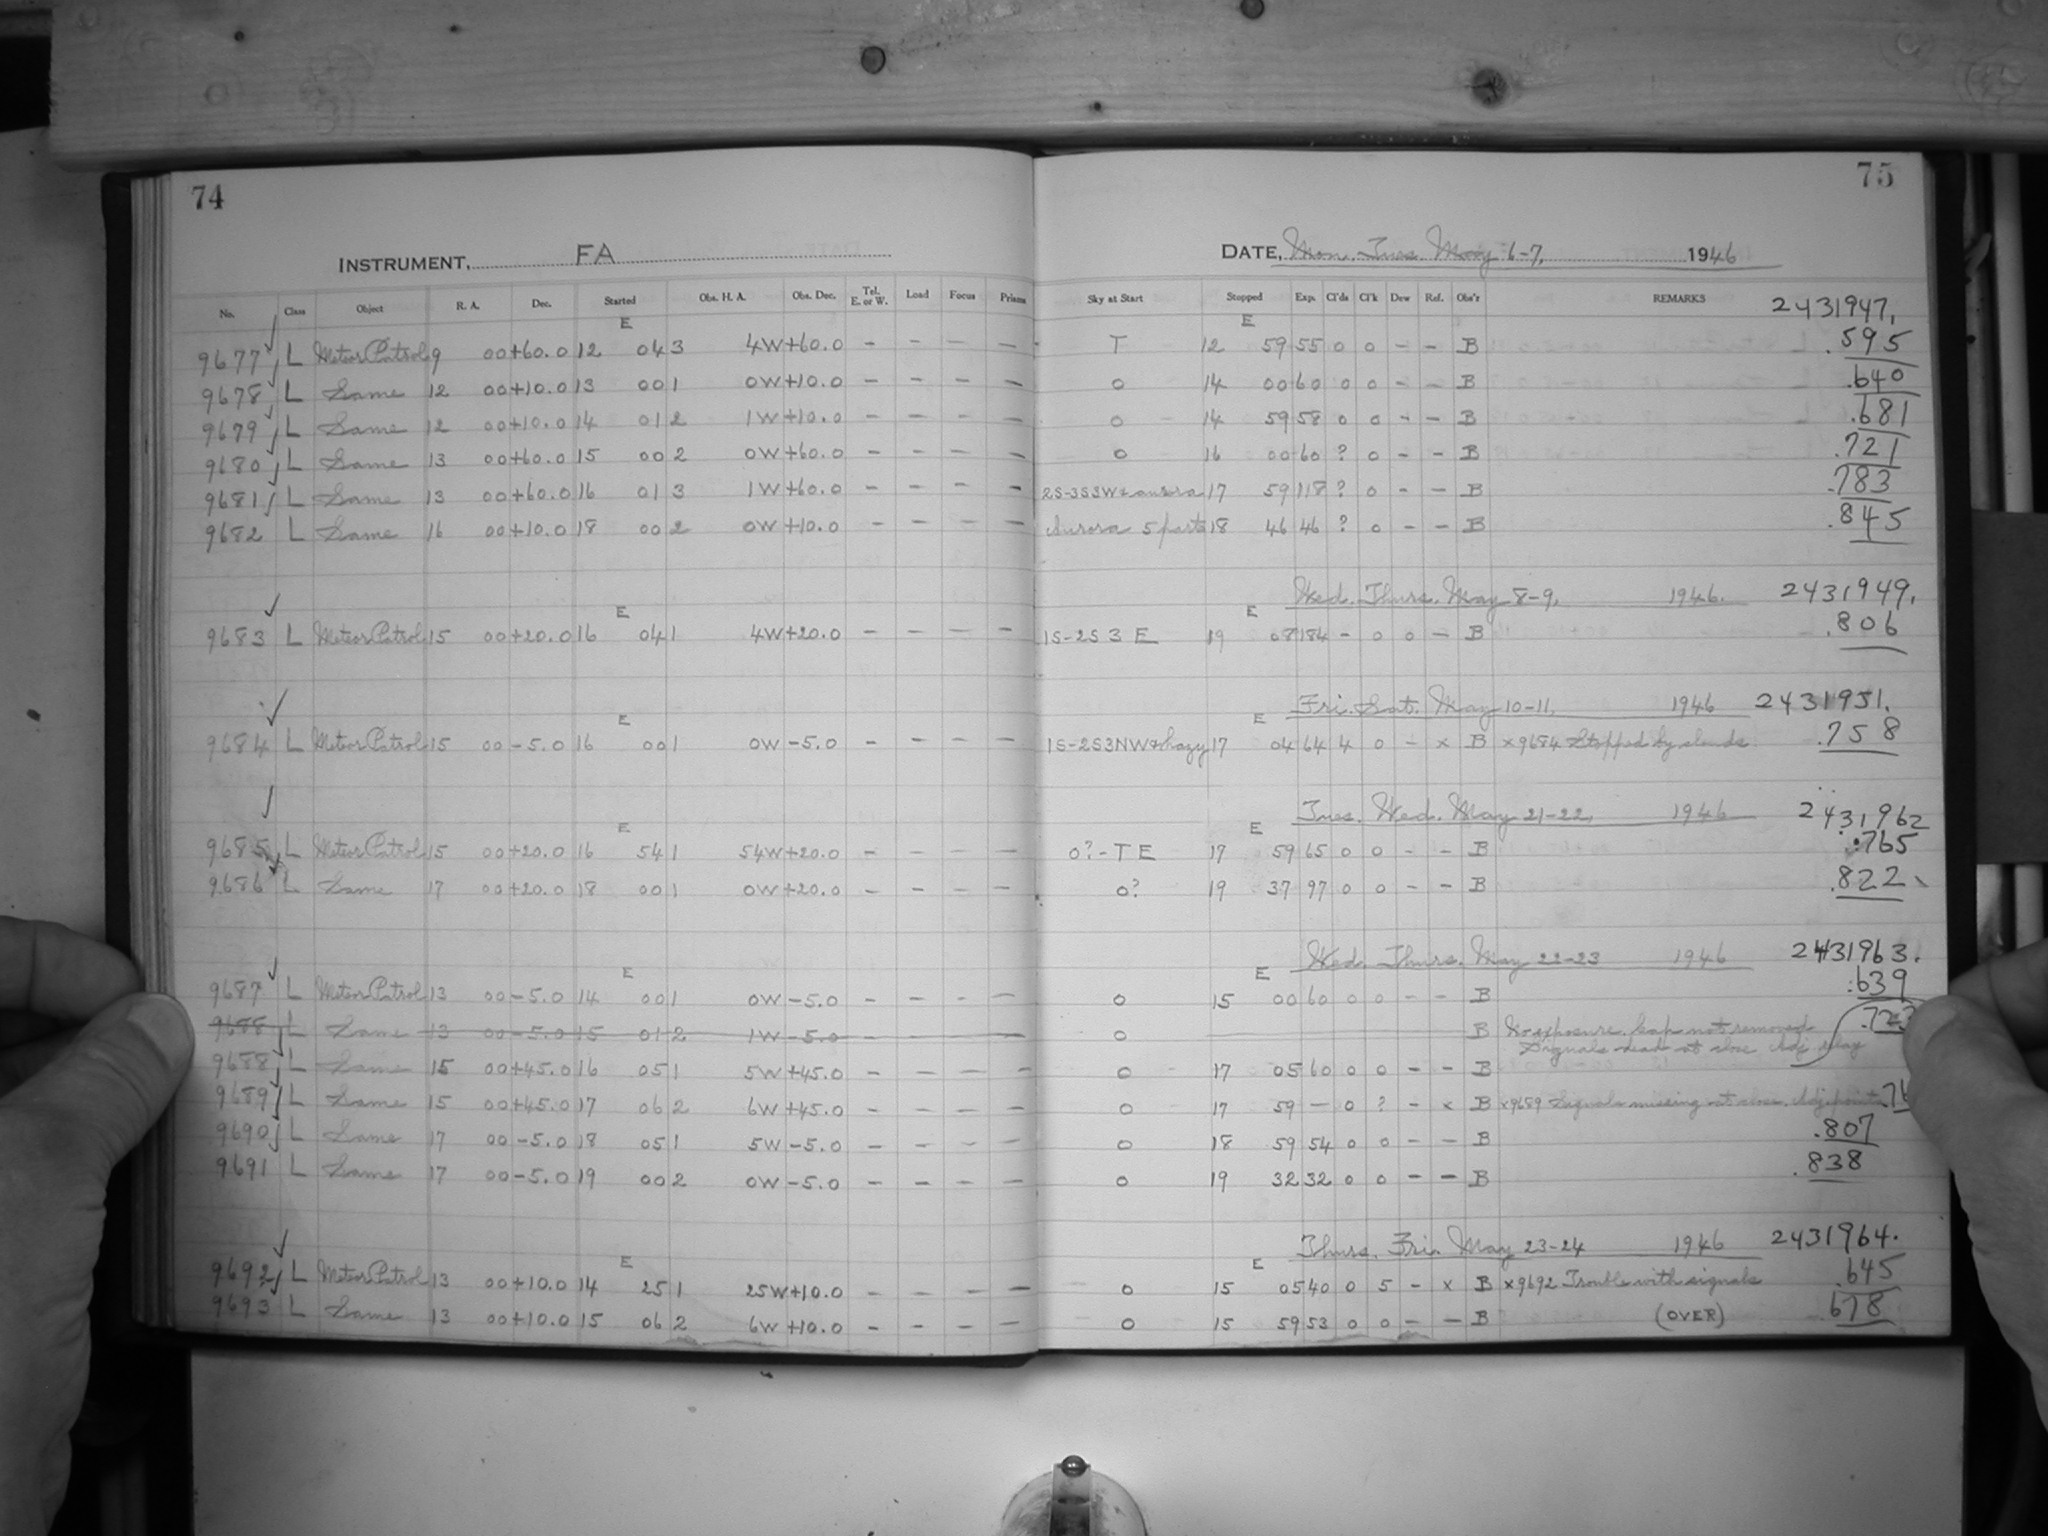 74
INSTRUMENT, FA
No. Class Object R. A. Dec. Started Obs. H. A. Obs. Dec. Tel. E. or W. Load Focus Prisms
E
9677 L Meteor Patrol 9 00 +60.0 12 04 3 4W +60.0 - - - -
9678 L Same 12 00 +10.0 13 00 1 0W +10.0 - - - -
9679 L Same 12 00 +10.0 14 01 2 1W +10.0 - - - -
9680 L Same 13 00 +60.0 15 00 2 0W +60.0 - - - -
9681 L Same 13 00 +60.0 16 01 3 1W +60.0 - - - -
9682 L Same 16 00 +10.0 18 00 2 0W +10.0 - - - -
E
9683 L Meteor Patrol 15 00 +20.0 16 04 1 4W +20.0 - - - -
E
9684 L Meteor Patrol 15 00 -5.0 16 00 1 0W -5.0 - - - -
E
9685 L Meteor Patrol 15 00 +20.0 16 54 1 54W +20.0 - - - -
9686 L Same 17 00 +20.0 18 00 1 0W +20.0 - - - -
E
9687 L Meteor Patrol 13 00 -5.0 14 00 1 0W -5.0 - - - -
9688 L Same 13 00 -5.0 15 01 2 1W -5.0
9688 L Same 15 00 +45.0 16 05 1 5W +45.0 - - - -
9689 L Same 15 00 +45.0 17 06 2 6W +45.0 - - - -
9690 L Same 17 00 -5.0 18 05 1 5W -5.0 - - - -
9691 L Same 17 00 -5.0 19 00 2 0W -5.0 - - - -
E
9692 L Meteor Patrol 13 00 +10.0 14 25 1 25W +10.0 - - - -
9693 L Same 13 00 +10.0 15 06 2 6W +10.0 - - - -
75
DATE, Mon. Tues. May 6-7, 1946
Sky at Start Stopped Exp. Cl'ds Cl'k Dew Ref. Obs'r REMARKS 2431947.
E
T 12 59 55 0 0 - - B .595
0 14 00 60 0 0 - - B .640
0 14 59 58 0 0 - - B .681
0 16 00 60 ? 0 - - B .721
2S-3S3W+aurora 17 59 118 ? 0 - - B .783
Aurora 5 parts 18 46 46 ? 0 - - B .845
E Wed. Thurs. May 8-9, 1946. 2431949.
1S-2S 3 E 19 08 184 - 0 0 - B .806
E Fri. Sat. May 10-11, 1946 2431951.
1S-2S3NW+hazy 17 04 64 4 0 - x B x9684 Stopped by clouds .758
E Tues. Wed. May 21-22, 1946 2431962
0?-T E 17 59 65 0 0 - - B .765
0? 19 37 97 0 0 - - B .822
E Wed. Thurs. May 22-23 1946 2431963.
0 15 00 60 0 0 - - B .639
0 B No exposure. Cap not removed
Signals dead at close. Adj. relay
0 17 05 60 0 0 - - B
0 17 59 - 0 ? - x B x9689 Signals missing at close. Adj. point
0 18 59 54 0 0 - - B .807
0 19 32 32 0 0 - - B .838
E Thurs. Fri. May 23-24 1946 2431964.
0 15 05 40 0 5 - x B x9692 Trouble with signals .645
0 15 59 53 0 0 - - B (OVER) .678